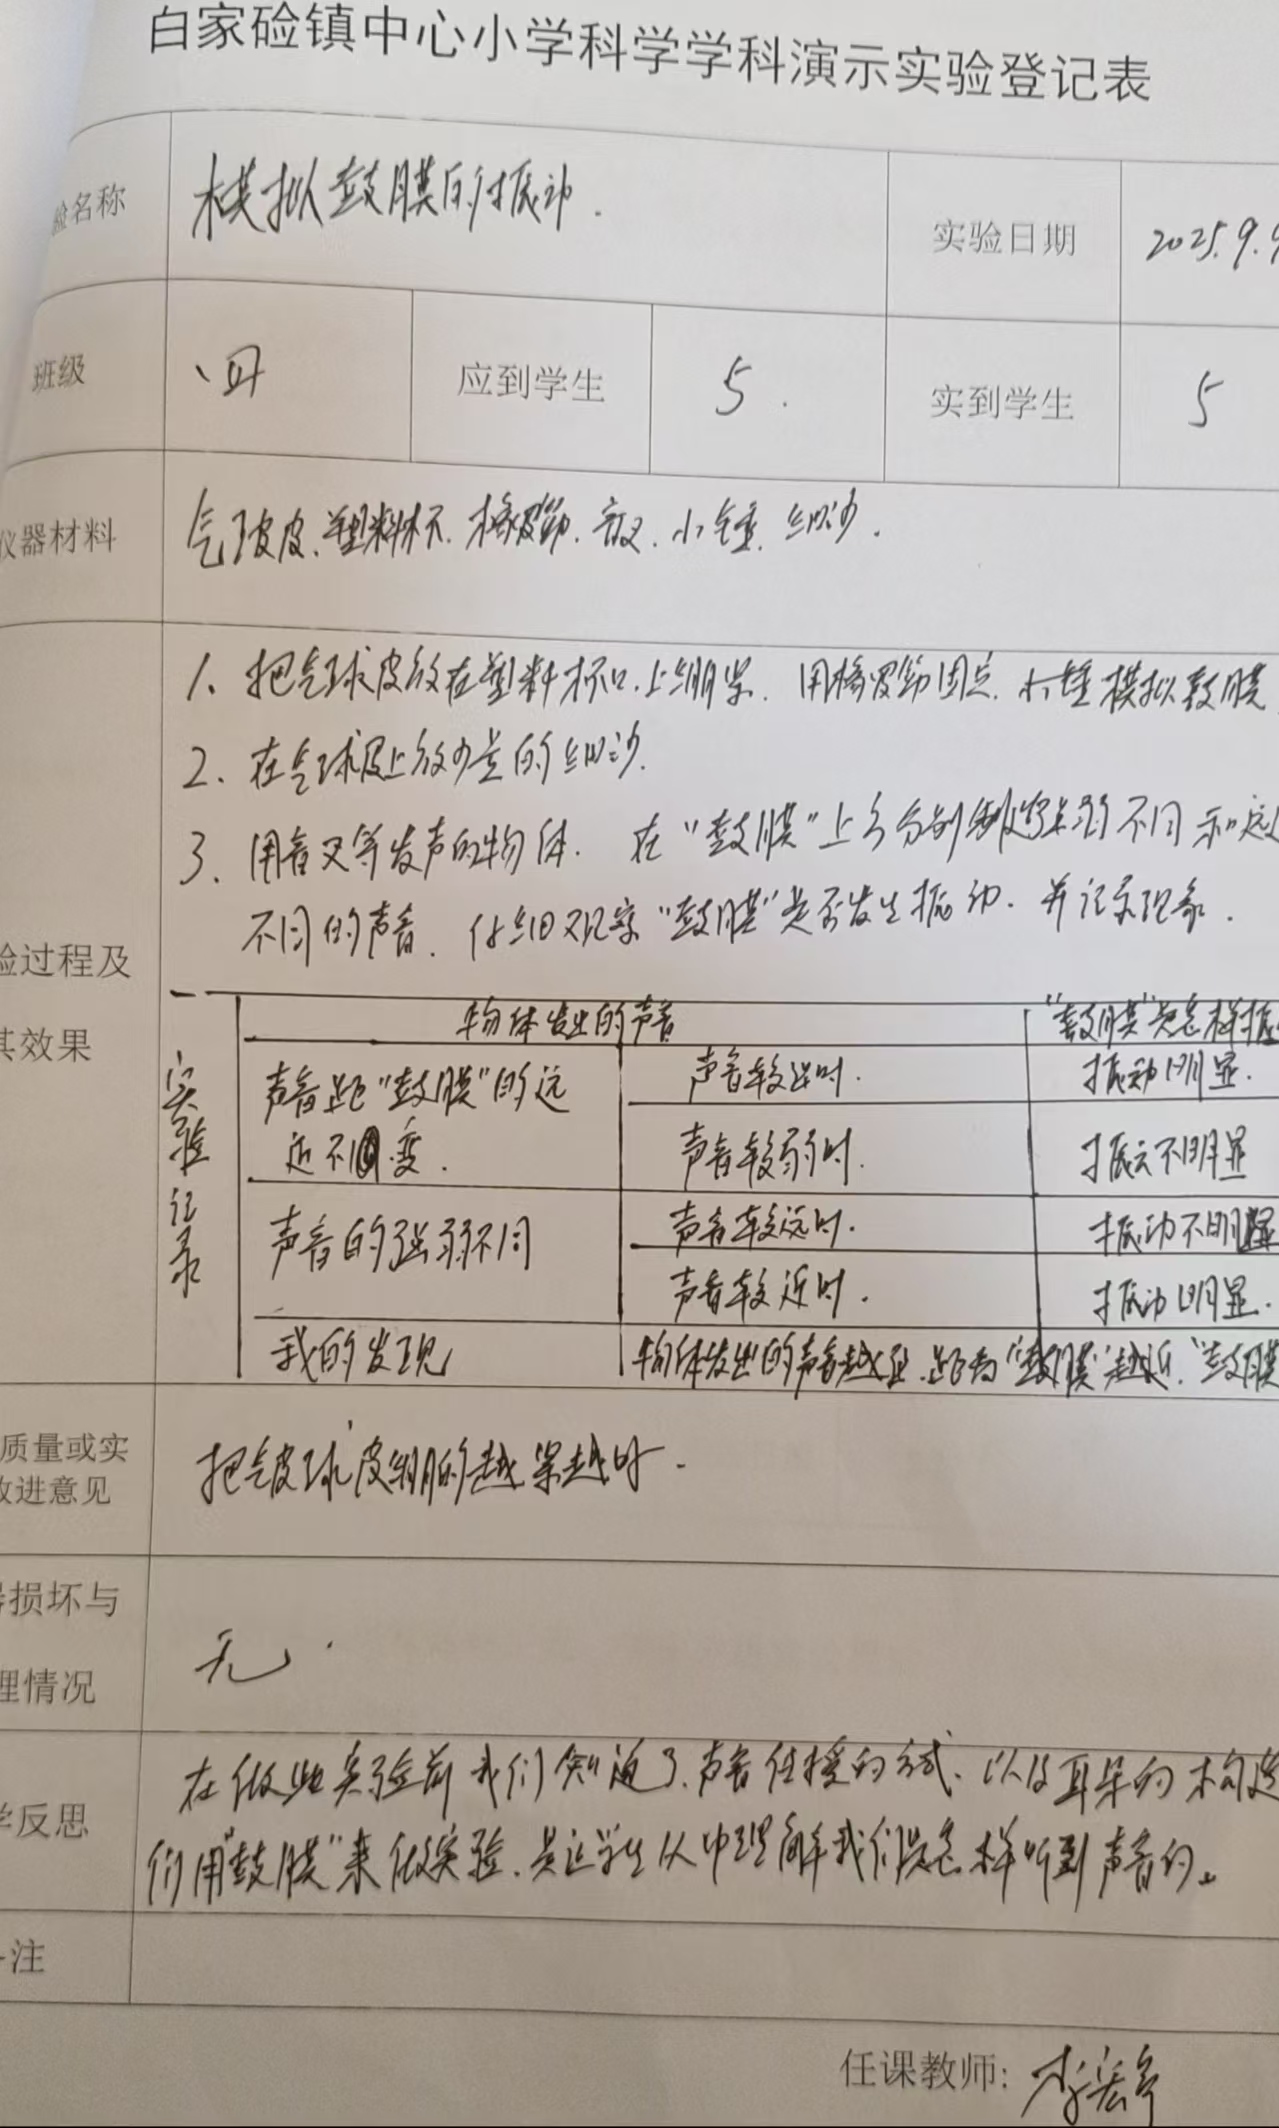 白家硷镇中心小学科学学科演示实验登记表
验名称 模拟鼓膜的振动. 实验日期 2025.9.9
班级 四 应到学生 5. 实到学生 5
仪器材料 气球皮、塑料杯、橡皮筋、音叉、小锤、细沙.
1、把气球皮放在塑料杯口上绷紧.用橡皮筋固定. 模拟鼓膜
2、在气球皮上放少量的细沙.
3、用音叉等发声的物体. 在“鼓膜”上方分别制造强弱不同和远
不同的声音.仔细观察“鼓膜”是否发生振动.并记录现象.
验过程及
其效果
实验记录
物体发出的声音 “鼓膜”是怎样振
声音距“鼓膜”的远
近不变. 声音较强时. 振动明显.
声音较弱时. 振动不明显
声音的强弱不同 声音较远时. 振动不明显
声音较近时. 振动明显.
我的发现 物体发出的声音越强.距离“鼓膜”越近.“鼓膜
质量或实
改进意见 把气皮球皮绷的越紧越好.
损坏与
理情况 无.
学反思 在做此实验前我们知道了声音传播的方式、以及耳朵的构造
们用“鼓膜”来做实验.是让学生从中理解我们是怎样听到声音的。
注
任课教师:李